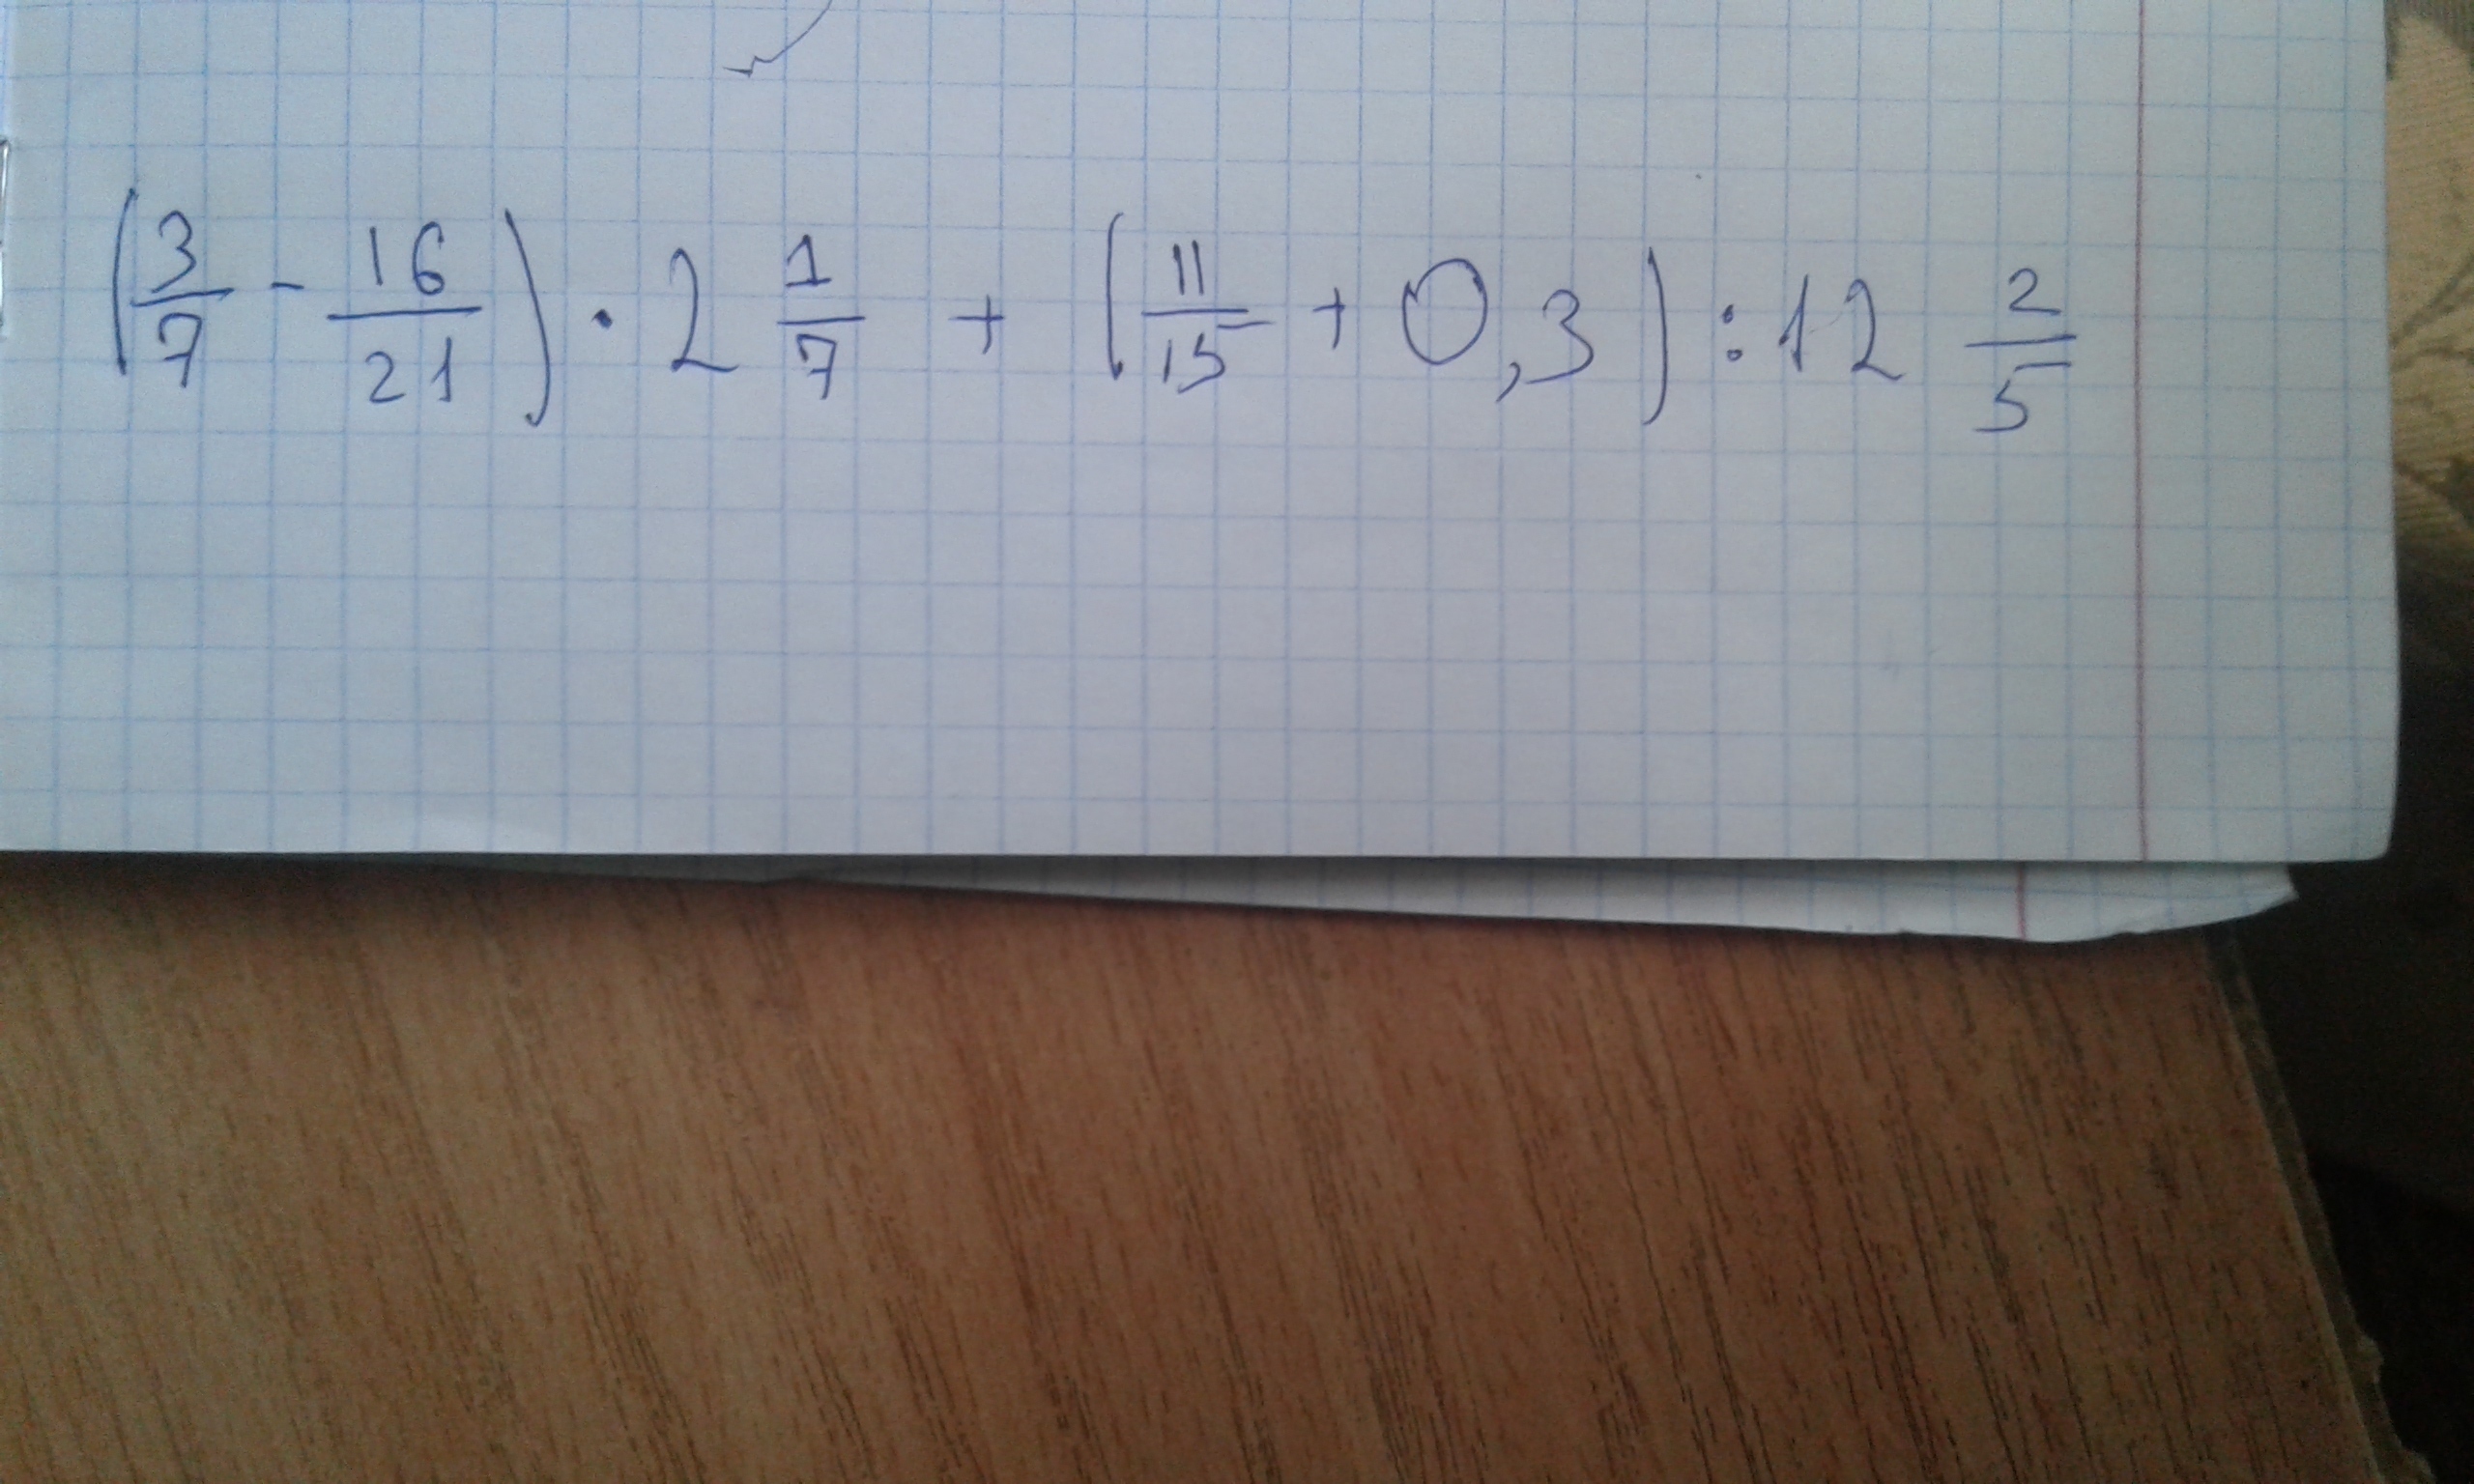 (3/7 - 16/21) · 2 1/7 + (11/15 + 0,3) : 12 2/5